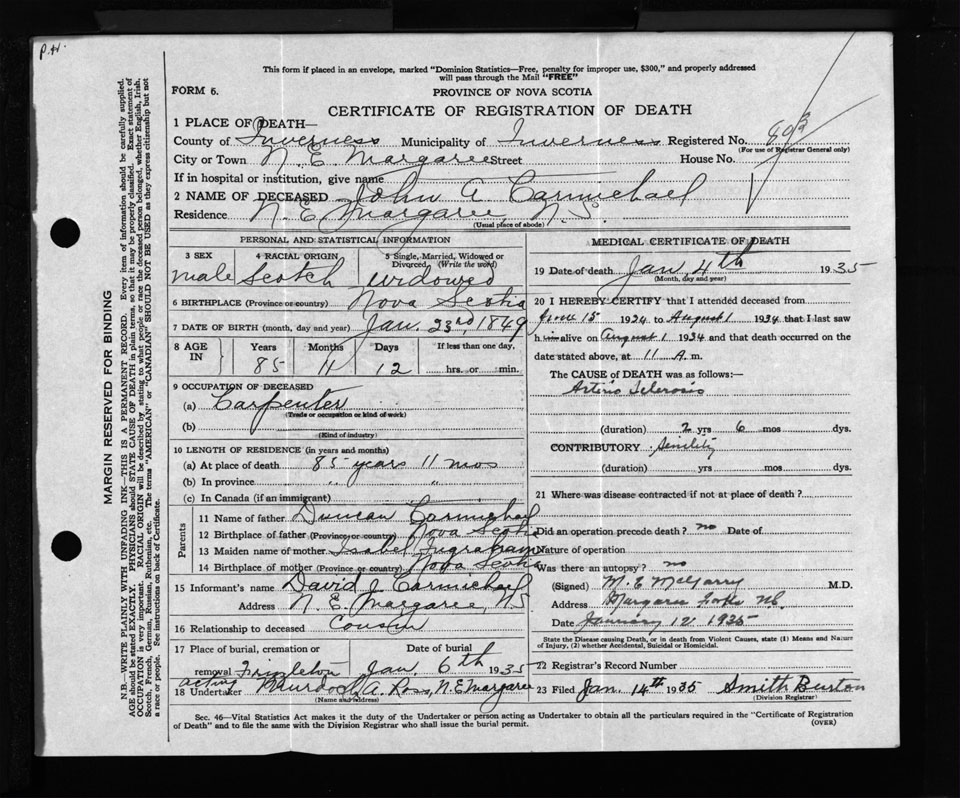 P.H.
This form if placed in an envelope, marked "Dominion Statistics—Free, penalty for improper use, $300," and properly addressed
will pass through the Mail "FREE"
FORM 6.
PROVINCE OF NOVA SCOTIA
CERTIFICATE OF REGISTRATION OF DEATH
1 PLACE OF DEATH—
County of Inverness Municipality of Inverness Registered No.
(For use of Registrar General only)
City or Town N. E. Margaree Street House No.
If in hospital or institution, give name
2 NAME OF DECEASED John A Carmichael
Residence N. E. Margaree, N.S.
(Usual place of abode)
PERSONAL AND STATISTICAL INFORMATION
3 SEX 4 RACIAL ORIGIN 5 Single, Married, Widowed or
Divorced (Write the word)
male Scotch widowed
6 BIRTHPLACE (Province or country) Nova Scotia
7 DATE OF BIRTH (month, day and year) Jan. 23rd, 1849
8 AGE IN Years Months Days If less than one day.
85 11 12 hrs. or min.
9 OCCUPATION OF DECEASED
(a) Carpenter
(Trade or occupation or kind of work)
(b)
(Kind of industry)
10 LENGTH OF RESIDENCE (in years and months)
(a) At place of death 85 years 11 mos
(b) In province " "
(c) In Canada (if an immigrant)
Parents
11 Name of father Duncan Carmichael
12 Birthplace of father (Province or country) Nova Scotia
13 Maiden name of mother Isabel Ingraham
14 Birthplace of mother (Province or country) Nova Scotia
15 Informant's name David J. Carmichael
Address N. E. Margaree, N.S
16 Relationship to deceased Cousin
17 Place of burial, cremation or Date of burial
removal Jan. 6th 1935
acting
18 Undertaker Murdoch A. Ross, N. E Margaree
(Name and Address)
MEDICAL CERTIFICATE OF DEATH
19 Date of death Jan 4th 1935
(Month, day and year)
20 I HEREBY CERTIFY that I attended deceased from
June 15 1934 to August 1 1934 that I last saw
him alive on August 1 1934 and that death occurred on the
date stated above, at 11 A. m.
The CAUSE of DEATH was as follows:—
Arterio Sclerosis
(duration) 2 yrs 6 mos dys.
CONTRIBUTORY Senility
(duration) yrs mos dys.
21 Where was disease contracted if not at place of death?
Did an operation precede death? no Date of
Nature of operation
Was there an autopsy? no
(Signed) M. E. McGarry M.D.
Address Margaree Forks N.S.
Date January 12 1935
State the Disease causing Death, or in death from Violent Causes, state (1) Means and Nature
of Injury, (2) whether Accidental, Suicidal or Homicidal.
22 Registrar's Record Number
23 Filed Jan. 14th 1935 Smith Burton
(Division Registrar)
Sec. 46—Vital Statistics Act makes it the duty of the Undertaker or person acting as Undertaker to obtain all the particulars required in the "Certificate of Registration
of Death" and to file the same with the Division Registrar who shall issue the burial permit. (OVER)
MARGIN RESERVED FOR BINDING
N.B.—WRITE PLAINLY WITH UNFADING INK—THIS IS A PERMANENT RECORD. Every item of information should be carefully supplied.
AGE should be stated EXACTLY. PHYSICIANS should STATE CAUSE OF DEATH in plain terms, so that it may be properly classified. Exact statement of
OCCUPATION is very important. RACIAL ORIGIN will be described by stating to what people or race the deceased person belonged, whether English, Irish,
Scotch, French, German, Russian, Ruthenian, etc. The terms "AMERICAN" or "CANADIAN" SHOULD NOT BE USED as they express citizenship but not
a race or people. See instructions on back of Certificate.